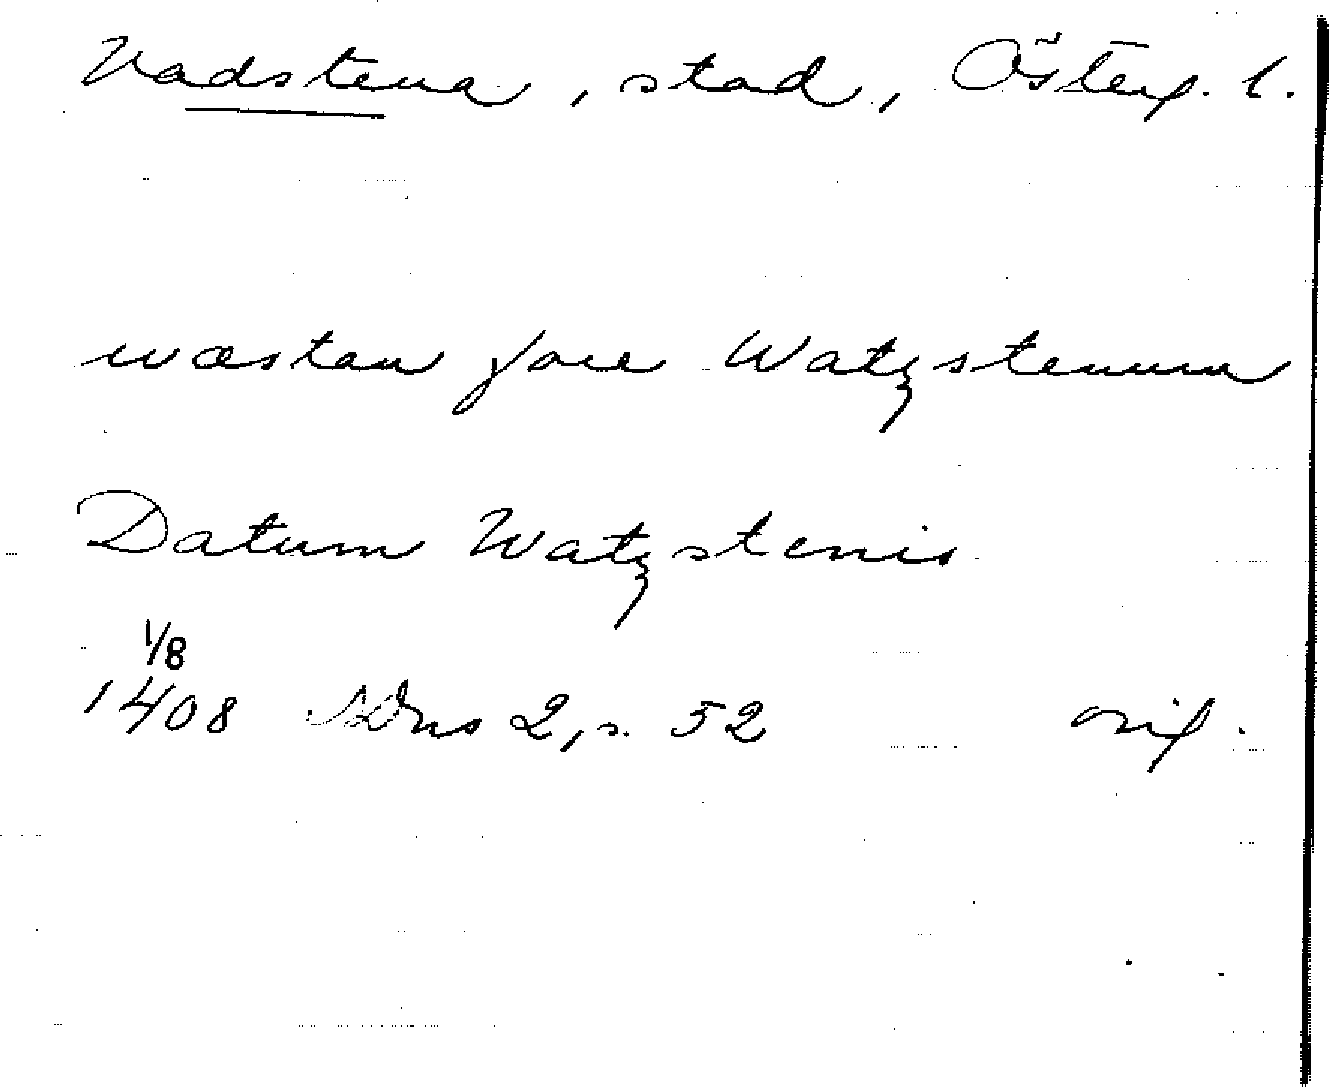 Vadstena, stad, Österg. l.
wæstan fore Watzstenum
Datum Watzstenis
1/8
1408 SDns 2, s. 52 orig.